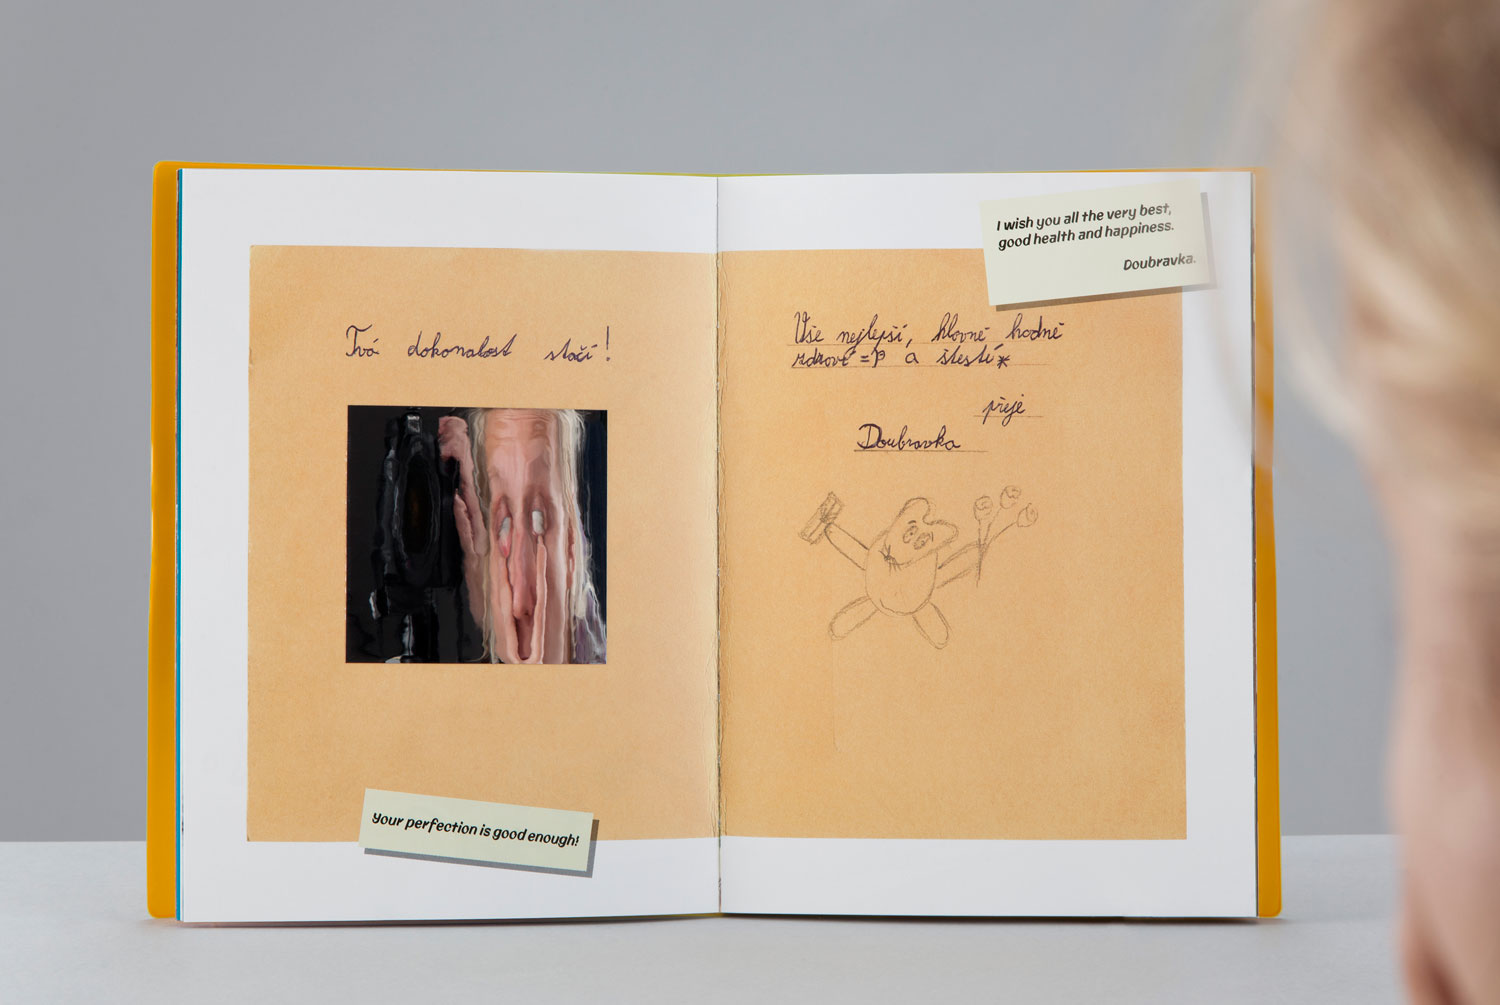 Tvá dokonalost stačí!
Your perfection is good enough!
I wish you all the very best,
good health and happiness.
Doubravka.
Vše nejlepší, hlavně hodně
zdraví =P a štěstí*
přeje
Doubravka